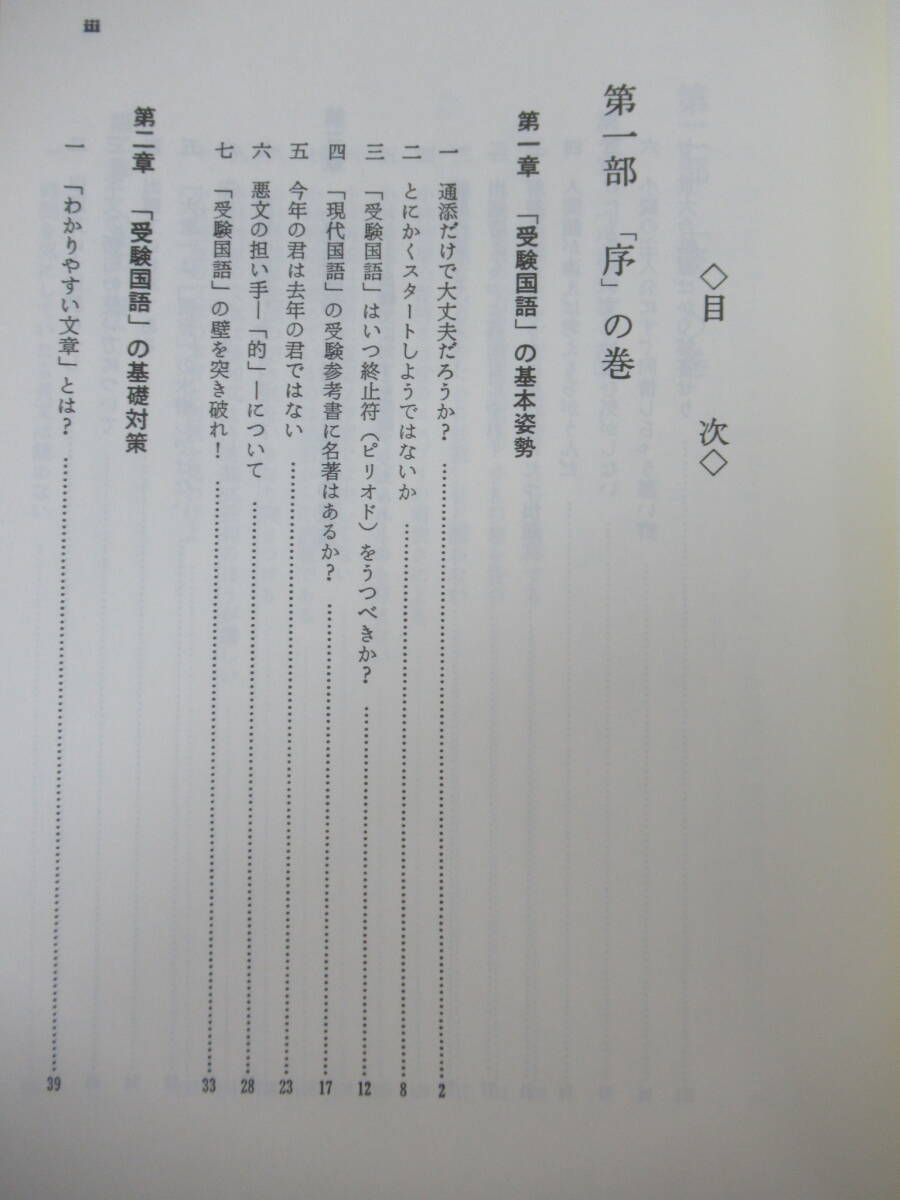 iii
◇目　次◇
第一部　「序」の巻
第一章　「受験国語」の基本姿勢
一　通添だけで大丈夫だろうか？……2
二　とにかくスタートしようではないか……8
三　「受験国語」はいつ終止符（ピリオド）をうつべきか？……12
四　「現代国語」の受験参考書に名著はあるか？……17
五　今年の君は去年の君ではない……23
六　悪文の担い手―「的」―について……28
七　「受験国語」の壁を突き破れ！……33
第二章　「受験国語」の基礎対策
一　「わかりやすい文章」とは？……39